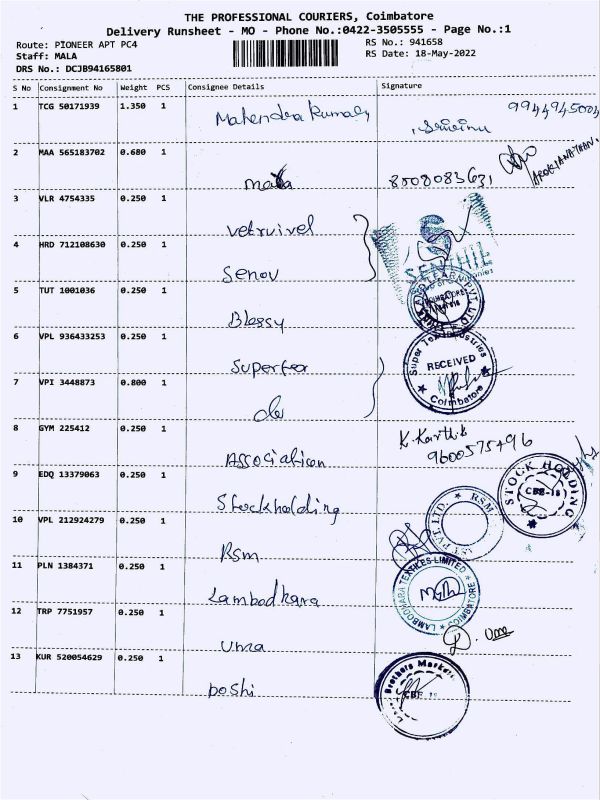 THE PROFESSIONAL COURIERS, Coimbatore
Delivery Runsheet - MO - Phone No.:0422-3505555 - Page No.:1
Route: PIONEER APT PC4
RS No.: 941658
Staff: MALA
RS Date: 18-May-2022
DRS No.: DCJB94165801
S No Consignment No Weight PCS Consignee Details Signature
1 TCG 50171939 1.350 1
Mahendra Kumar
2 MAA 565183702 0.680 1
mala 8508083631
AROKIANATHAN
3 VLR 4754335 0.250 1
vetrivel
4 HRD 712108630 0.250 1
Senov
SENTHIL
5 TUT 1001036 0.250 1
Blessy
6 VPL 936433253 0.250 1
Supertex
Super Tex Industries
RECEIVED
Coimbatore
7 VPI 3448873 0.800 1
do
8 GYM 225412 0.250 1
Association
K. Karthik
9 EDQ 13379063 0.250 1
Stockholding
STOCK HOLDING
CBE-18
10 VPL 212924279 0.250 1
Rsm
RSM
PVT. LTD.
11 PLN 1384371 0.250 1
Lambodhara
LAMBODHARA TEXTILES LIMITED
COIMBATORE
12 TRP 7751957 0.250 1
Uma
D. Uma
13 KUR 520054629 0.250 1
poshi
Brothers Market
CBE 18